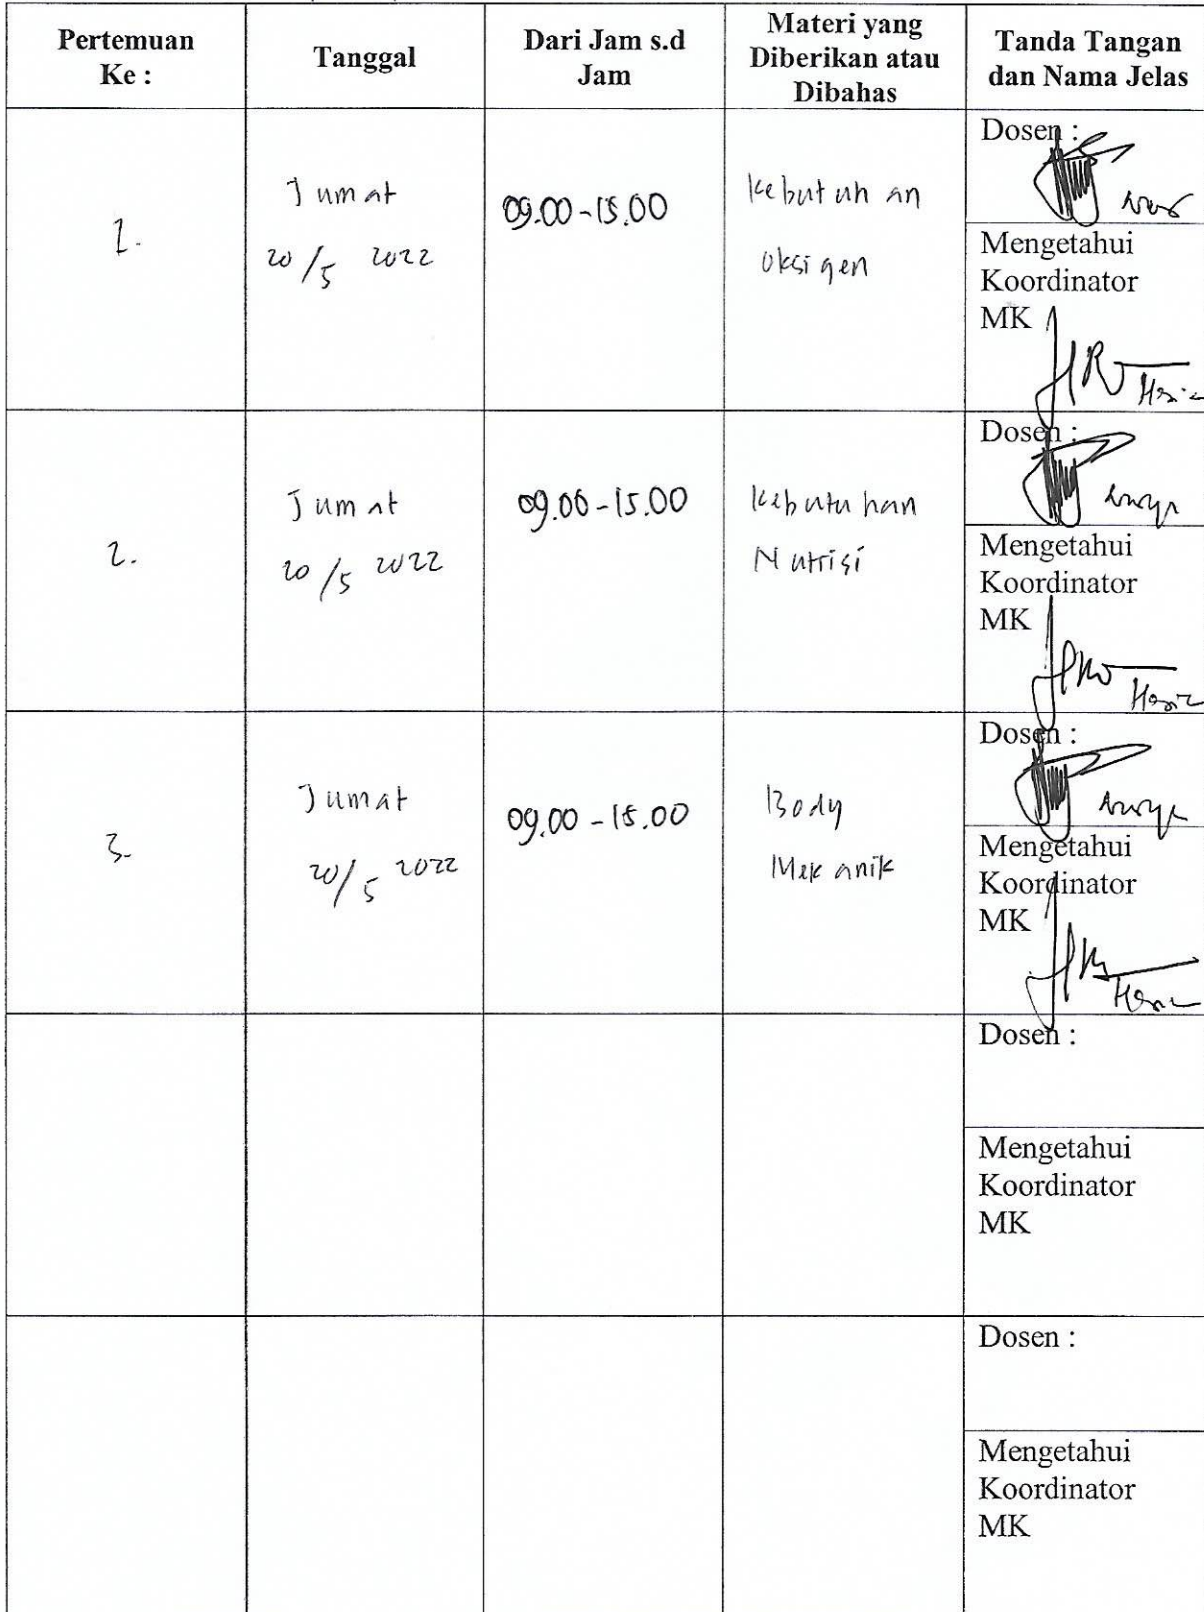 Pertemuan
Ke :
Tanggal
Dari Jam s.d
Jam
Materi yang
Diberikan atau
Dibahas
Tanda Tangan
dan Nama Jelas
1.
Jumat
20/5 2022
09.00-15.00
Kebutuhan
Oksigen
Dosen :
Mengetahui
Koordinator
MK
2.
Jumat
20/5 2022
09.00-15.00
Kebutuhan
Nutrisi
Dosen :
Mengetahui
Koordinator
MK
3.
Jumat
20/5 2022
09.00-15.00
Body
Mekanik
Dosen :
Mengetahui
Koordinator
MK
Dosen :
Mengetahui
Koordinator
MK
Dosen :
Mengetahui
Koordinator
MK